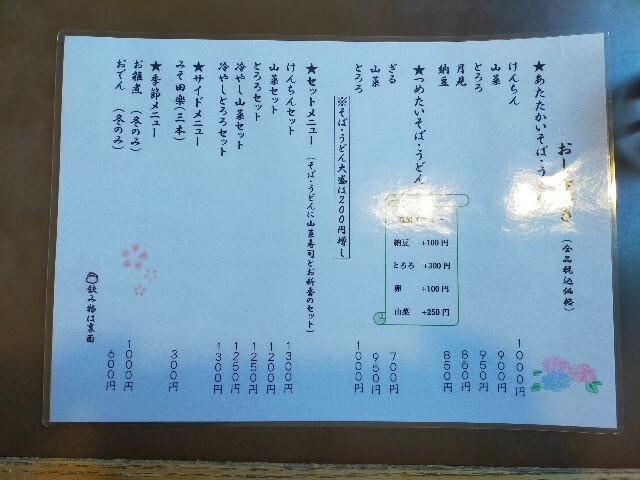 おし き (全品税込価格)
★あたたかいそば・うどん
けんちん 1000円
山菜 900円
とろろ 950円
月見 850円
納豆 850円
★つめたいそば・うどん
ざる 700円
山菜 950円
とろろ 1000円
※そば・うどん大盛は200円増し
納豆 +100円
とろろ +300円
卵 +100円
山菜 +250円
★セットメニュー (そば・うどんに山菜寿司とお新香のセット)
けんちんセット 1300円
山菜セット 1200円
とろろセット 1250円
冷やし山菜セット 1250円
冷やしとろろセット 1300円
★サイドメニュー
みそ田楽(三本) 300円
★季節メニュー
お雑煮 (冬のみ) 1000円
おでん (冬のみ) 600円
飲み物は裏面